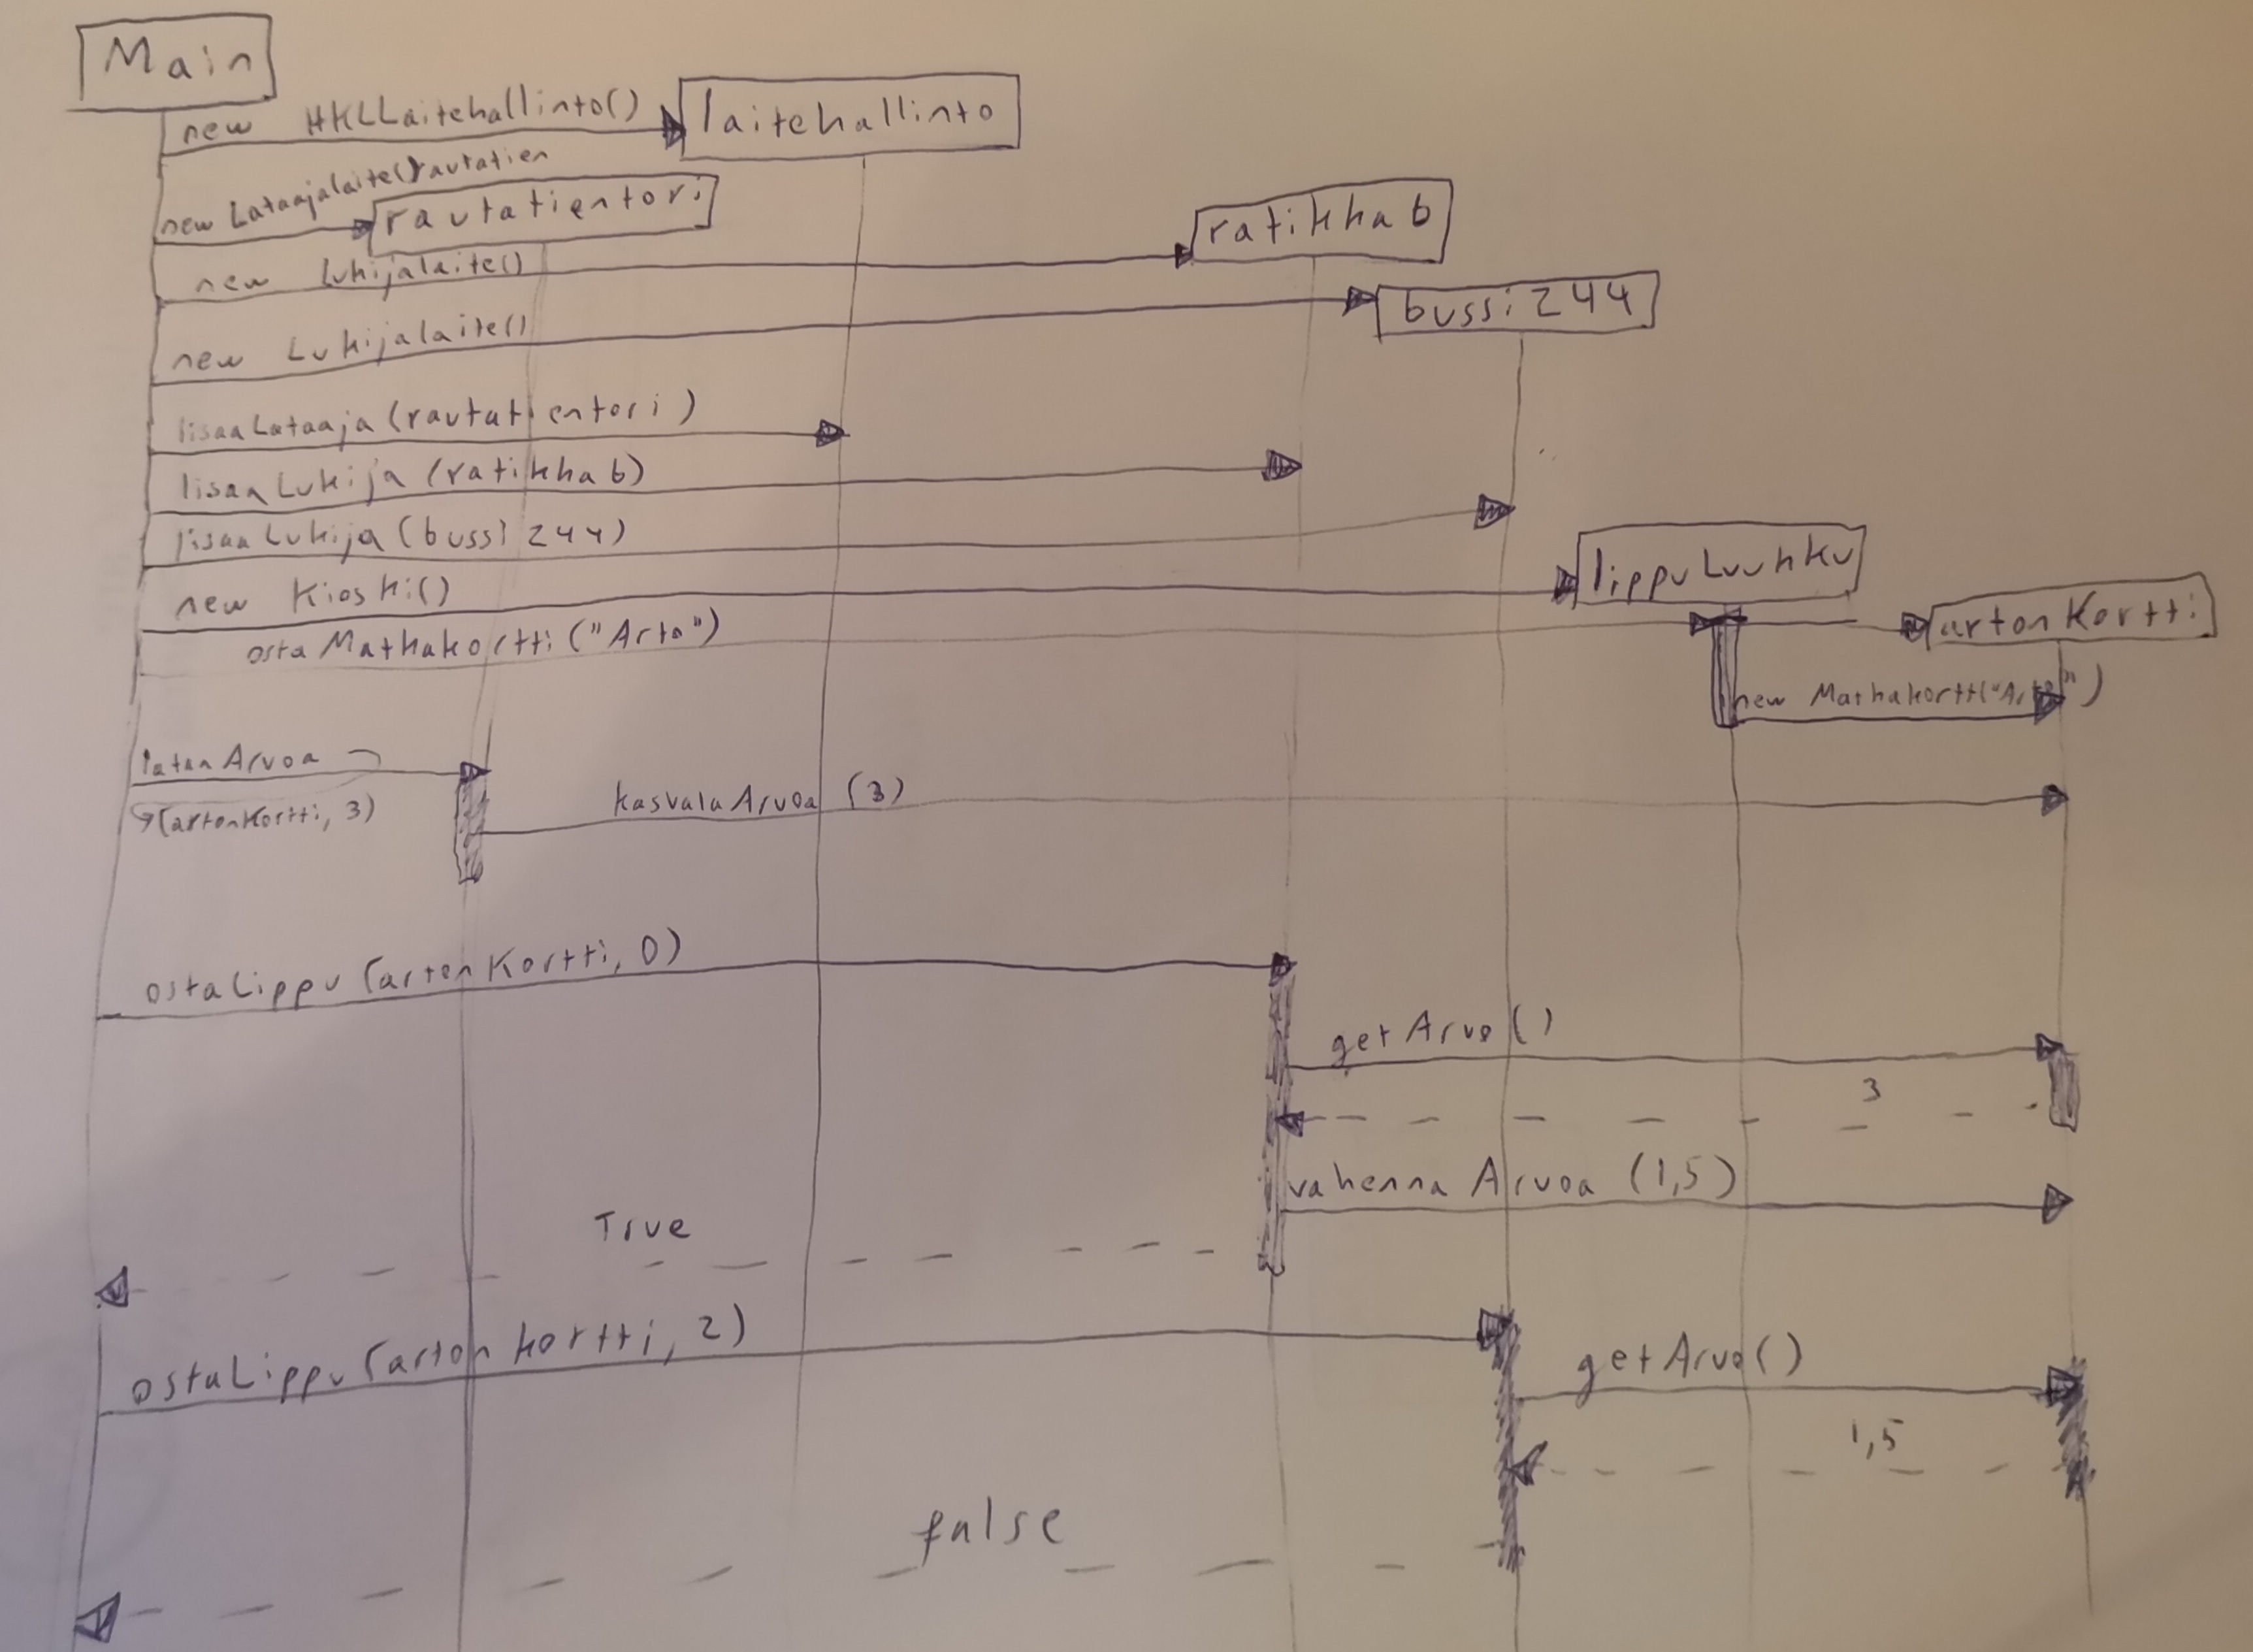 Main
new HKLLaitehallinto()
laitehallinto
new Lataajalaite() rautatien
rautatientori
ratikka6
new Lukijalaite()
bussi244
new Lukijalaite()
lisaaLataaja(rautatientori)
lisaaLukija(ratikka6)
lisaaLukija(bussi244)
lippuLuukku
new Kioski()
artonKortti
ostaMatkakortti("Arto")
new Matkakortt("Arto")
lataaArvoa
(artonKortti, 3)
kasvataArvoa (3)
ostaLippu(artonKortti, 0)
getArvo()
3
vahennaArvoa (1,5)
True
ostaLippu(artonkortti, 2)
getArvo()
1,5
false